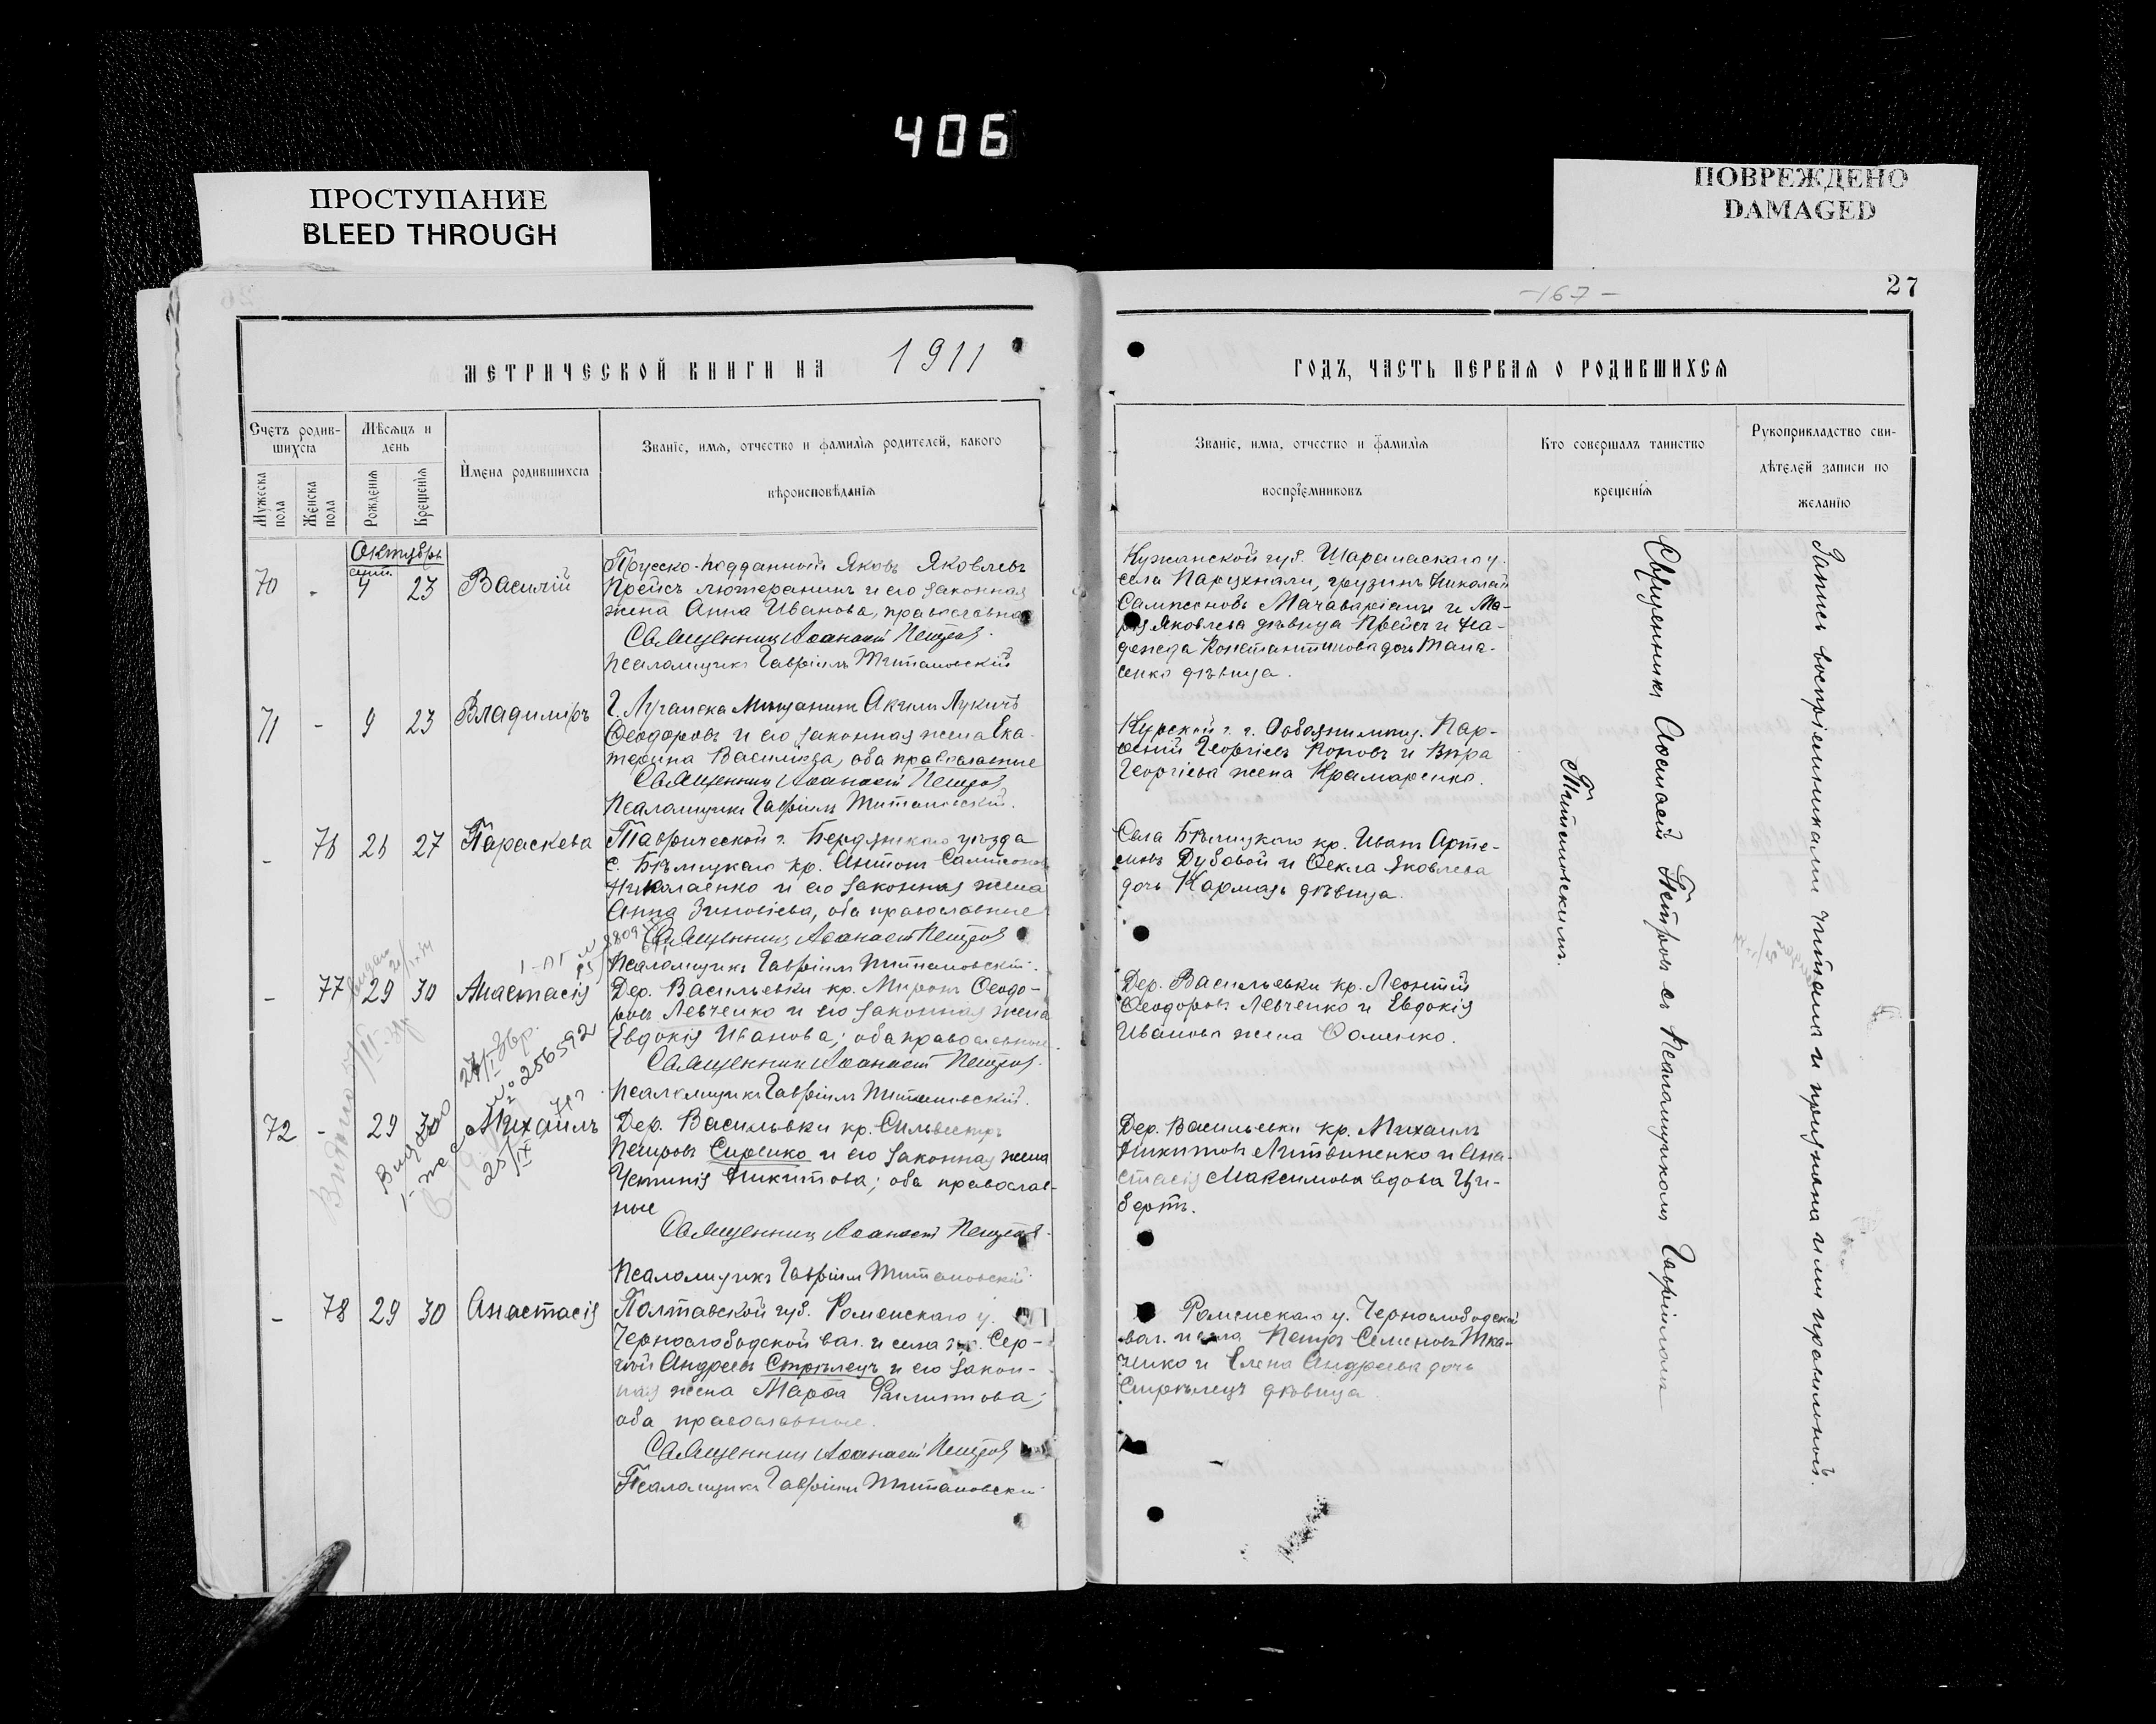 406
ПРОСТУПАНИЕ
BLEED THROUGH
ПОВРЕЖДЕНО
DAMAGED
-167-
27
МЕТРИЧЕСКОЙ КНИГИ НА 1911
ГОДЪ, ЧАСТЬ ПЕРВАЯ О РОДИВШИХСЯ
Счетъ родив-
шихся
Мужеска пола
Женска пола
Мѣсяцъ и
день
Рожденія
Крещенія
Имена родившихся
Званіе, имя, отчество и фамилія родителей, какого
вѣроисповѣданія
Званіе, имя, отчество и фамилія
воспріемниковъ
Кто совершалъ таинство
крещенія
Рукоприкладство сви-
дѣтелей записи по
желанію
Октябрь
сент.
70 - 4 23 Василій
Прусско-подданный Яковъ Яковлевъ
Прейсъ лютеранинъ и его законная
жена Анна Иванова, православная
Священникъ Аѳанасій Петровъ.
Псаломщикъ Гавріилъ Титановскій
губ. Шарапанскаго у.
села грузинъ Николай
Сампсоновъ Мачаваріани и Ма-
рія Яковлева дѣвица Прейсъ и На-
дежда Константинова дочь Тана-
сенко дѣвица.
71 - 9 23 Владиміръ
Г. Луганска мѣщанинъ Акимъ Лукичъ
Ѳеодоровъ и его законная жена Ека-
терина Васильева, оба православные
Священникъ Аѳанасій Петровъ
Псаломщикъ Гавріилъ Титановскій.
Курской г. г. Обояни мѣщ. Пар-
ѳеній Георгіевъ Поповъ и Вѣра
Георгіева жена Крамаренко.
- 76 26 27 Параскева
Таврической г. Бердянскаго уѣзда
с. Бѣлицкаго кр. Антонъ Сампсоновъ
Николаенко и его законная жена
Анна Зиновіева, оба православные
Священникъ Аѳанасій Петровъ
Псаломщикъ Гавріилъ Титановскій.
Села Бѣлицкаго кр. Иванъ Арте-
мовъ Дубовой и Ѳекла Яковлева
дочь Кармазь дѣвица.
- 77 29 30 Анастасія
Дер. Васильевки кр. Миронъ Ѳеодо-
ровъ Левченко и его законная жена
Евдокія Иванова; оба православные.
Священникъ Аѳанасій Петровъ.
Псаломщикъ Гавріилъ Титановскій.
Дер. Васильевки кр. Леонтій
Ѳеодоровъ Левченко и Евдокія
Иванова жена Ѳоменко.
№ 256592
Выдано
72 - 29 30 Михаилъ
Дер. Васильвки кр. Сильвестръ
Петровъ Сиренко и его законная жена
Устинія Никитова; оба православ-
ные
Священникъ Аѳанасій Петровъ.
Псаломщикъ Гавріилъ Титановскій
Дер. Васильевки кр. Михаилъ
Никитовъ Литвиненко и Ана-
стасія Максимова вдова Ци-
бертъ.
- 78 29 30 Анастасія
Полтавской губ. Роменскаго у.
Чернослободской вол. и села кр. Сер-
гій Андреевъ Стрѣлецъ и его закон-
ная жена Марѳа Филиппова;
оба православные.
Священникъ Аѳанасій Петровъ
Псаломщикъ Гавріилъ Титановскій
Роменскаго у. Чернослободской
вол. и села Петръ Семеновъ Тка-
ченко и Елена Андреева дочь
Стрѣлецъ дѣвица.
Священникъ Аѳанасій Петровъ съ псаломщикомъ Гавріиломъ
Титановскимъ.
Запись воспріемниками читана и признана ими правильной.